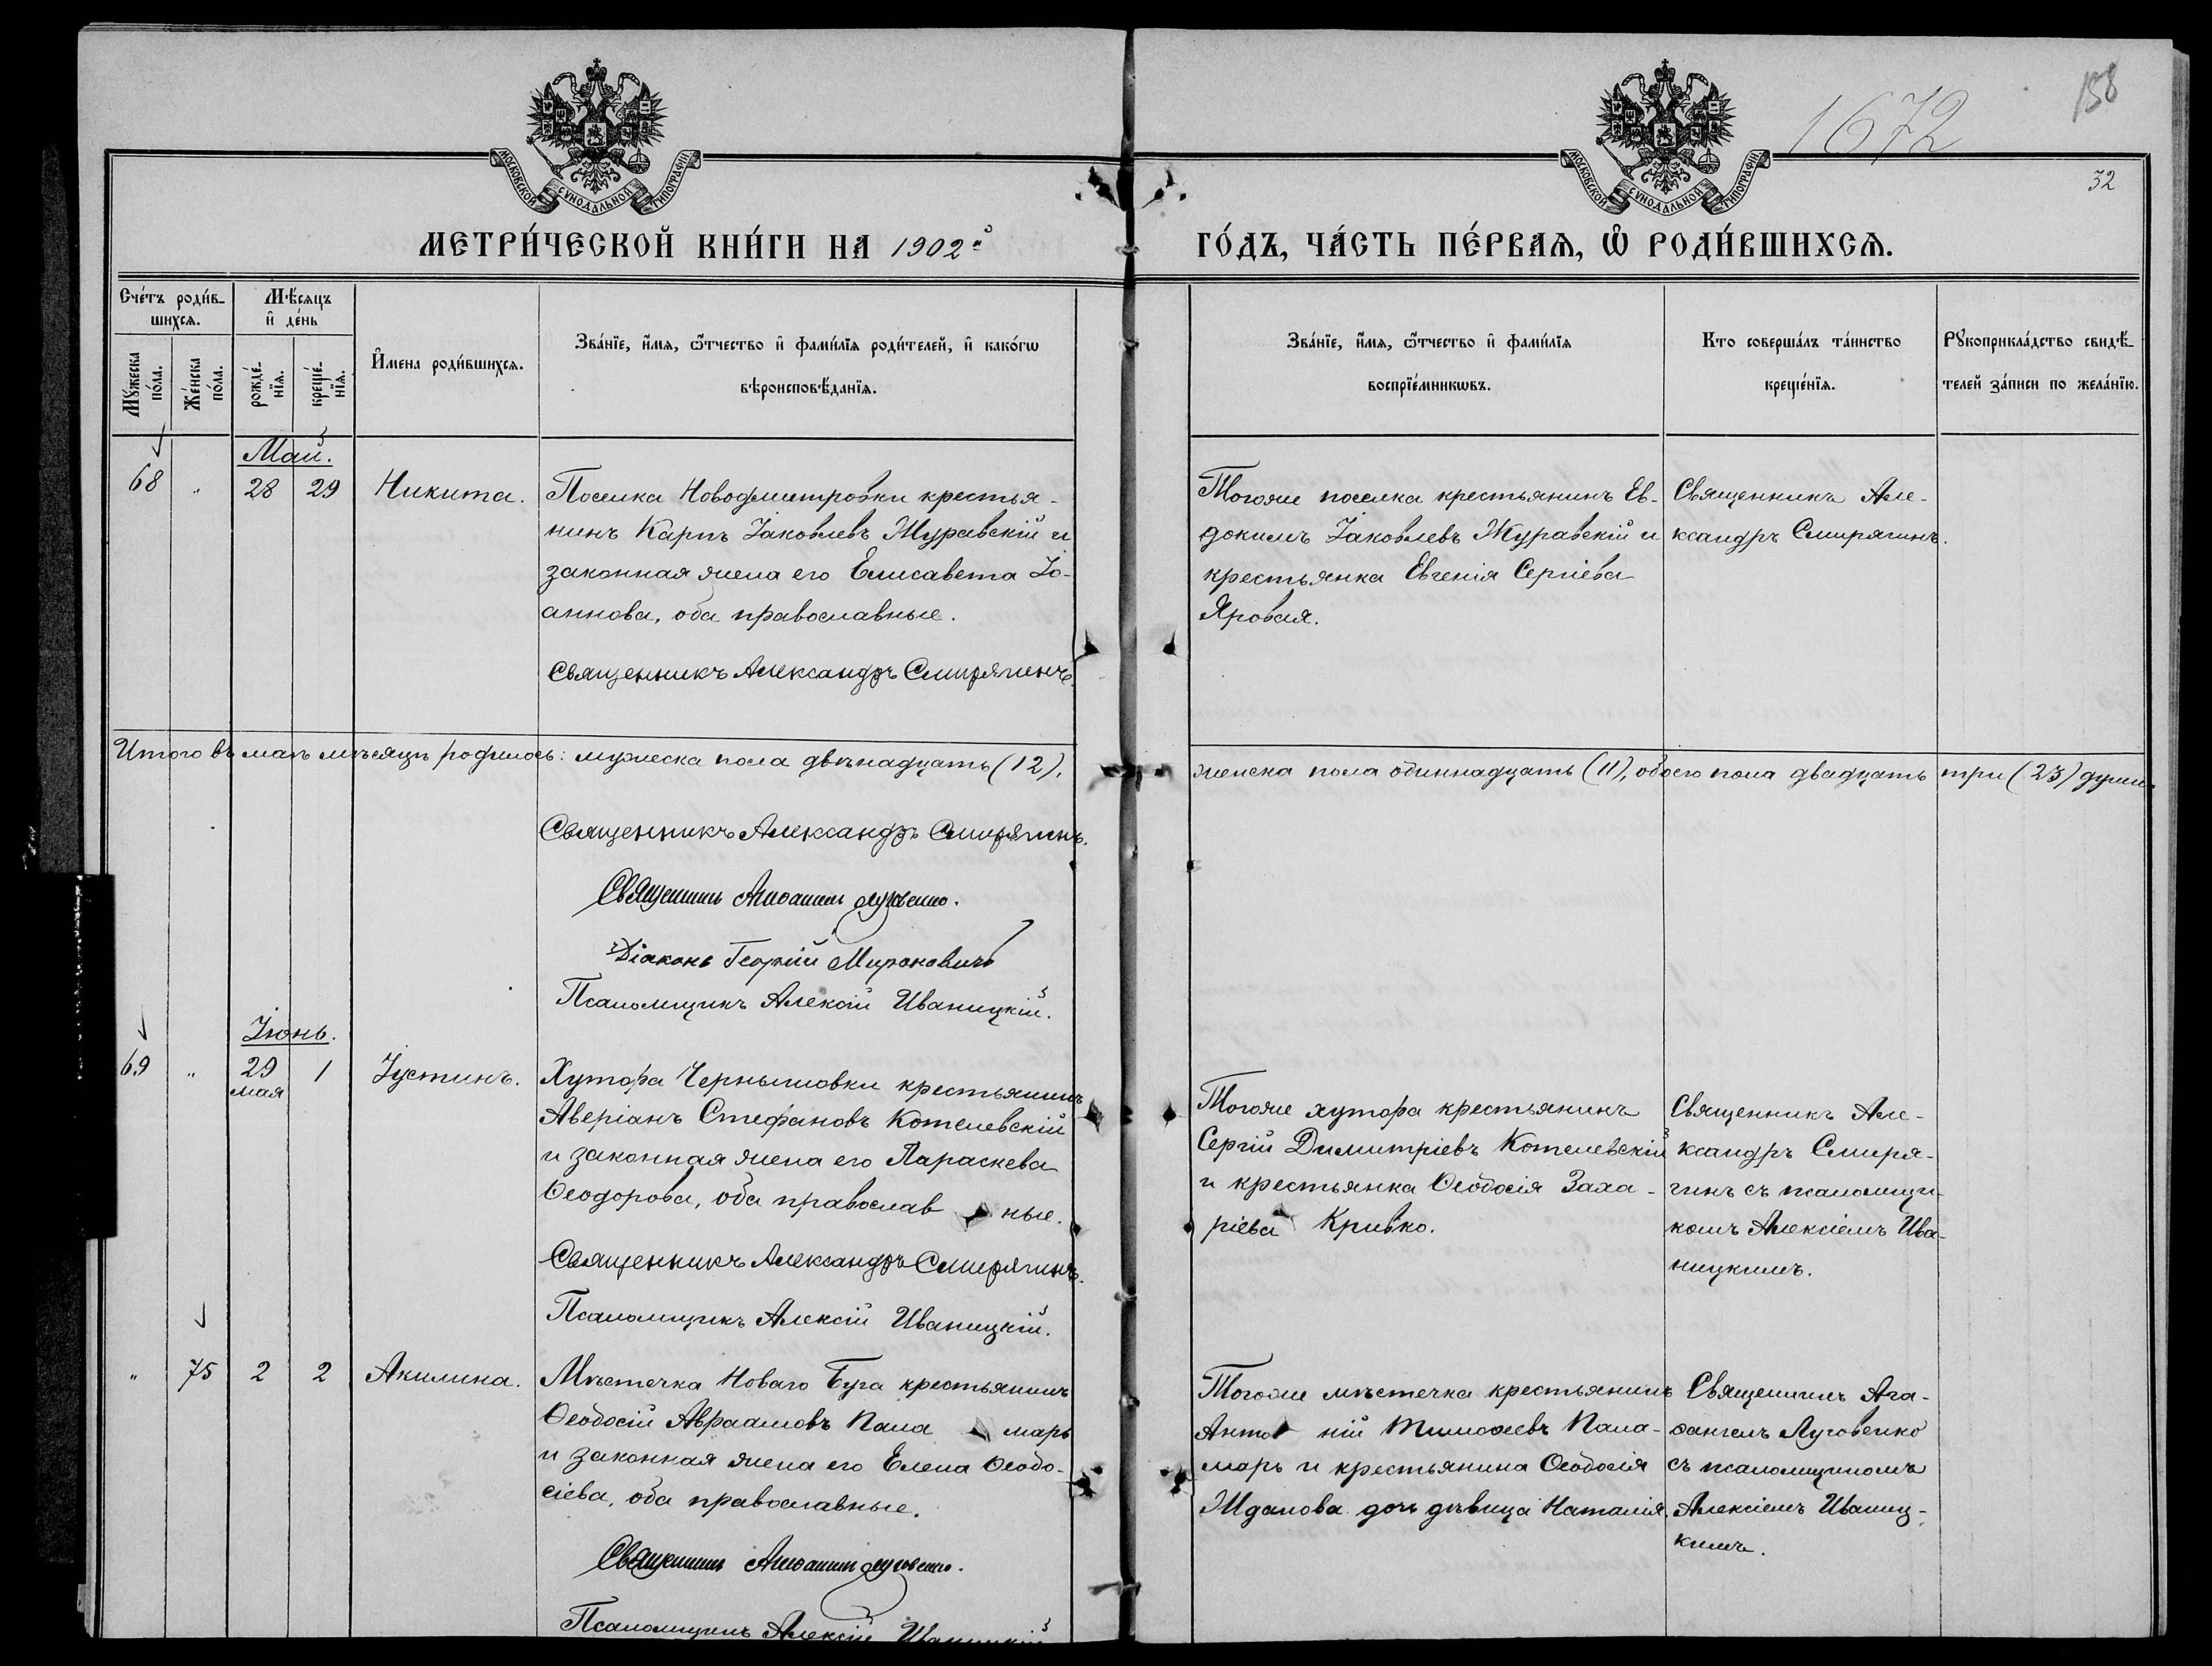 158
1672
32
МОСКОВСКОЙ СѴНОДАЛЬНОЙ ТИПОГРАФІИ
МОСКОВСКОЙ СѴНОДАЛЬНОЙ ТИПОГРАФІИ
МЕТРИ́ЧЕСКОЙ КНИ́ГИ НА 1902й
ГО́ДЪ, ЧА́СТЬ ПЕ́РВАѦ, Ѡ҆ РОДИ́ВШИХСѦ.
Сче́тъ роди́в-
шихсѧ.
Мꙋ́жеска по́ла.
Же́нска по́ла.
Мѣ́сѧцъ
и҆ де́нь
рожде́-
нїѧ.
креще́-
нїѧ.
И҆мена роди́вшихсѧ.
Зва́нїе, и҆́мѧ, ѻ҆́тчество и҆ фами́лїѧ роди́телей, и҆ како́гѡ
вѣроисповѣ́данїѧ.
Зва́нїе, и҆́мѧ, ѻ҆́тчество и҆ фами́лїѧ
воспрїе́мникѡвъ.
Кто соверша́лъ та́инство
креще́нїѧ.
Рꙋкоприкла́дство свидѣ́-
телей за́писи по жела́нїю.
Май.
68 " 28 29 Никита.
Поселка Новодмитровки крестья-
нинъ Карпъ Іаковлевъ Журавскій и
законная жена его Елисавета Іо-
аннова, оба православные.
Священникъ Александръ Смирягинъ.
Тогоже поселка крестьянинъ Ев-
докимъ Іаковлевъ Журавскій и
крестьянка Евгенія Сергіева
Яровая.
Священникъ Але-
ксандръ Смирягинъ.
Итого въ маѣ мѣсяцѣ родилось: мужеска пола двѣнадцать (12),
женска пола одиннадцать (11), обоего пола двадцать три (23) души.
Священникъ Александръ Смирягинъ.
Священникъ Агаѳангелъ Луговенко.
Діаконъ Георгій Мироновичъ
Псаломщикъ Алексій Иваницкій.
Іюнь.
69 " 29 мая 1 Іустинъ.
Хутора Чернышовки крестьянинъ
Аверіанъ Стефановъ Котелевскій
и законная жена его Параскева
Ѳеодорова, оба православные.
Священникъ Александръ Смирягинъ.
Псаломщикъ Алексій Иваницкій.
Тогоже хутора крестьянинъ
Сергій Димитріевъ Котелевскій
и крестьянка Ѳеодосія Заха-
ріева Кривко.
Священникъ Але-
ксандръ Смиря-
гинъ съ псаломщи-
комъ Алексіемъ Ива-
ницкимъ.
" 75 2 2 Акилина.
Мѣстечка Новаго Буга крестьянинъ
Ѳеодосій Авраамовъ Паламарь
и законная жена его Елена Ѳеодо-
сіева, оба православные.
Священникъ Агаѳангелъ Луговенко.
Псаломщикъ Алексій Иваницкій
Тогоже мѣстечка крестьянинъ
Антоній Тимоѳеевъ Пала-
марь и крестьянина Ѳеодосія
Жданова дочь дѣвица Наталія.
Священникъ Ага-
ѳангелъ Луговенко
съ псаломщикомъ
Алексіемъ Иваниц-
кимъ.